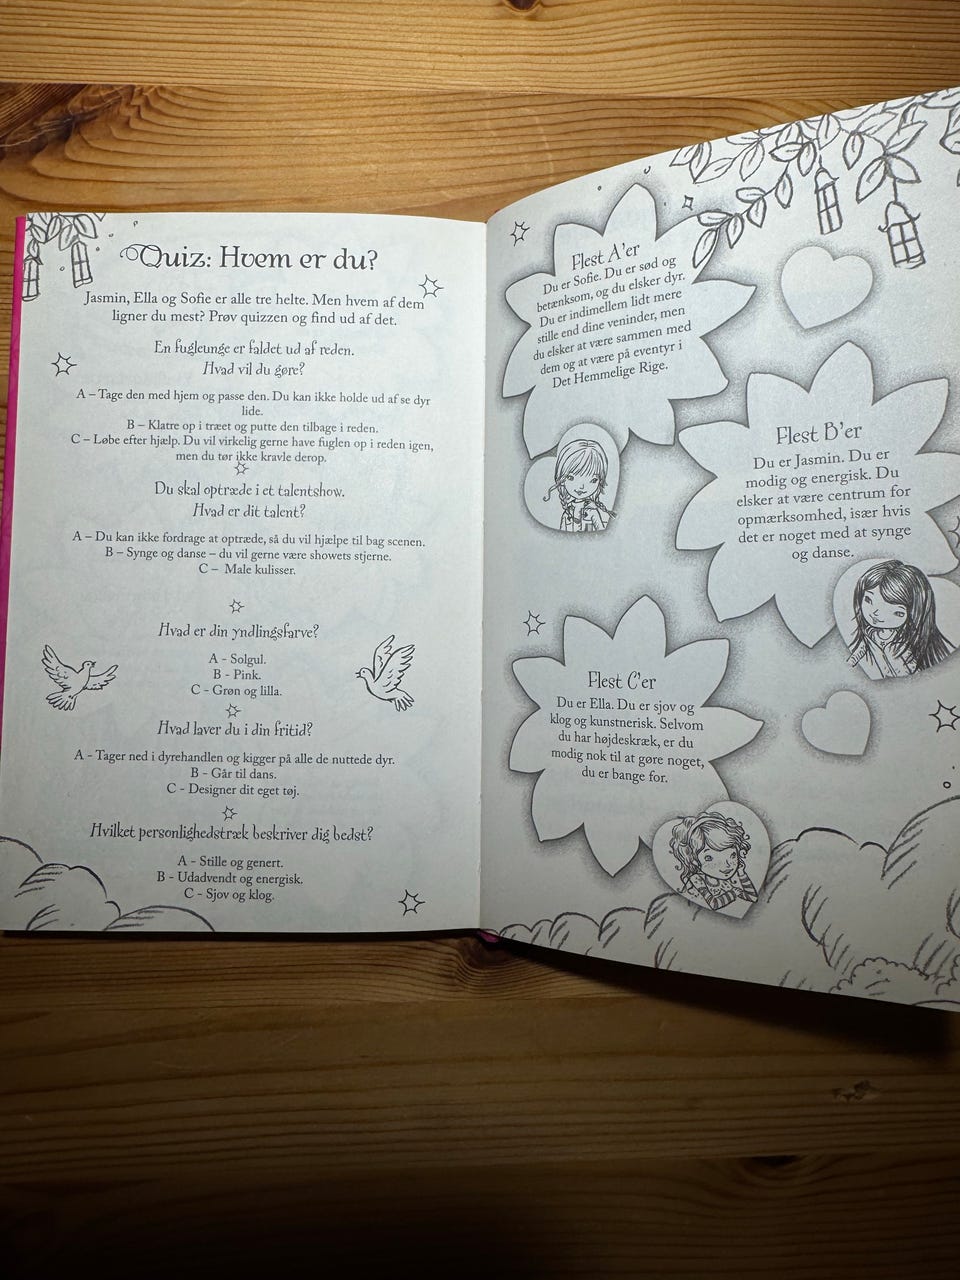 Quiz: Hvem er du?
Jasmin, Ella og Sofie er alle tre helte. Men hvem af dem
ligner du mest? Prøv quizzen og find ud af det.
En fugleunge er faldet ud af reden.
Hvad vil du gøre?
A – Tage den med hjem og passe den. Du kan ikke holde ud af se dyr
lide.
B – Klatre op i træet og putte den tilbage i reden.
C – Løbe efter hjælp. Du vil virkelig gerne have fuglen op i reden igen,
men du tør ikke kravle derop.
Du skal optræde i et talentshow.
Hvad er dit talent?
A – Du kan ikke fordrage at optræde, så du vil hjælpe til bag scenen.
B – Synge og danse – du vil gerne være showets stjerne.
C – Male kulisser.
Hvad er din yndlingsfarve?
A - Solgul.
B - Pink.
C - Grøn og lilla.
Hvad laver du i din fritid?
A - Tager ned i dyrehandlen og kigger på alle de nuttede dyr.
B - Går til dans.
C - Designer dit eget tøj.
Hvilket personlighedstræk beskriver dig bedst?
A - Stille og genert.
B - Udadvendt og energisk.
C - Sjov og klog.
Flest A'er
Du er Sofie. Du er sød og
betænksom, og du elsker dyr.
Du er indimellem lidt mere
stille end dine veninder, men
du elsker at være sammen med
dem og at være på eventyr i
Det Hemmelige Rige.
Flest B'er
Du er Jasmin. Du er
modig og energisk. Du
elsker at være centrum for
opmærksomhed, især hvis
det er noget med at synge
og danse.
Flest C'er
Du er Ella. Du er sjov og
klog og kunstnerisk. Selvom
du har højdeskræk, er du
modig nok til at gøre noget,
du er bange for.